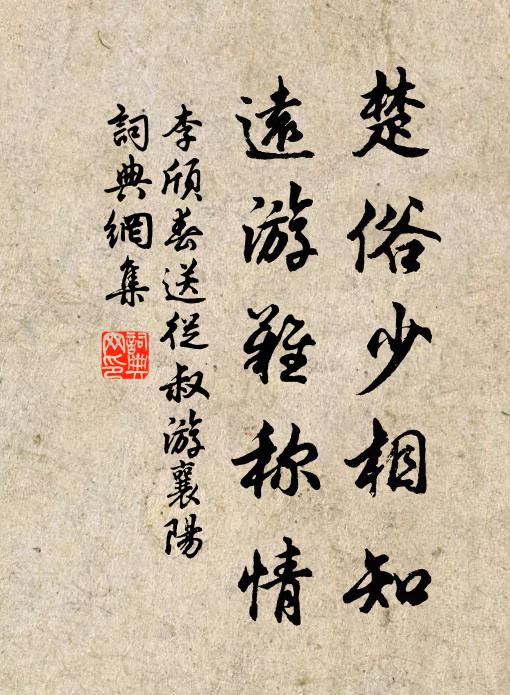 楚俗少相知
遠游難称情
李頎春送從叔游襄陽
詞典網集
詞典網印